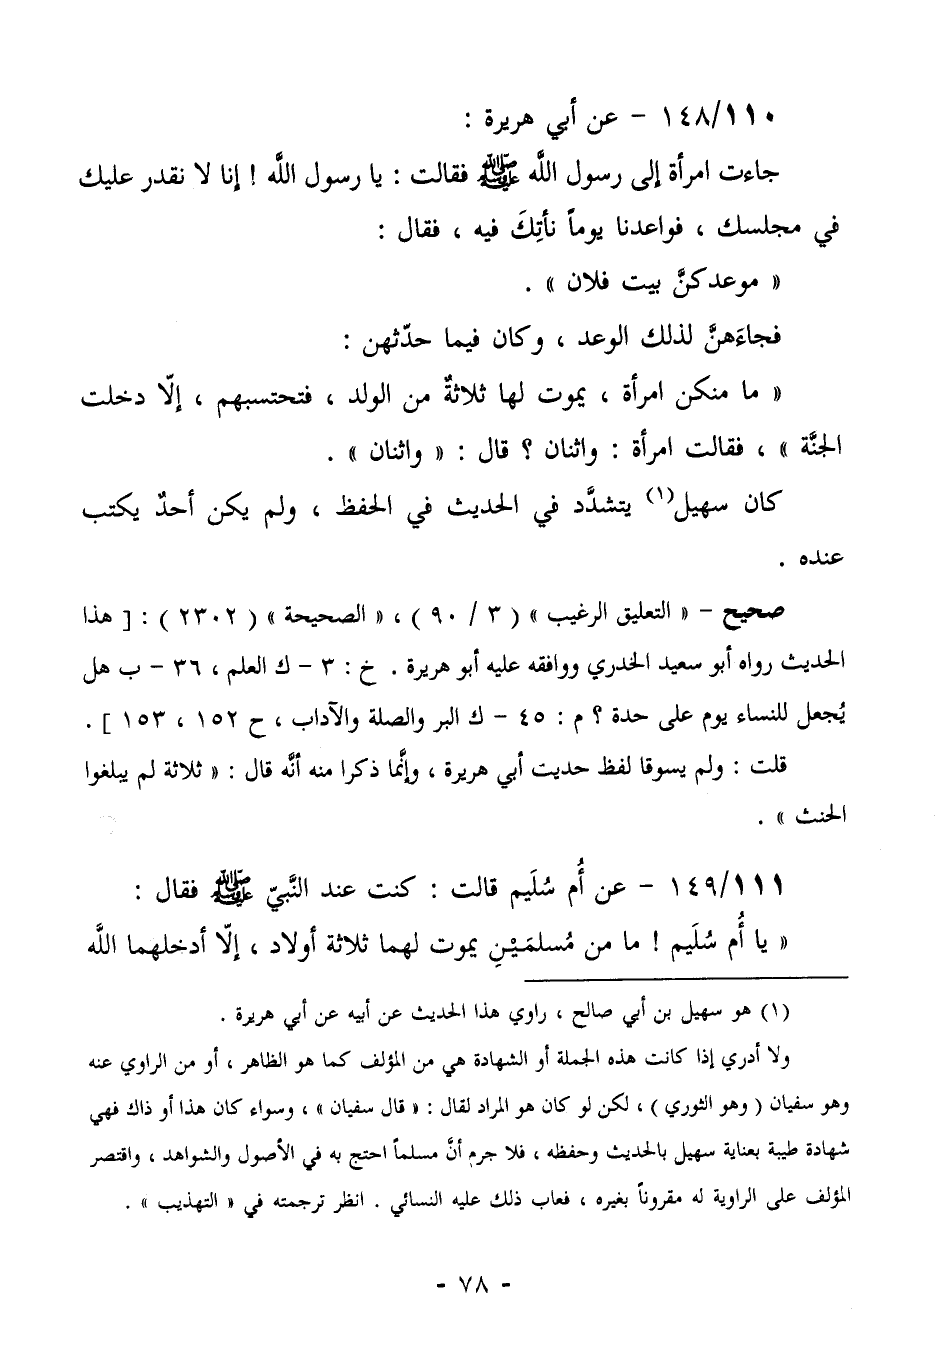 ١٤٨/١١٠ – عن أبي هريرة :
جاءت امرأة إلى رسول اللَّه ﷺ فقالت : يا رسول اللَّه ! إنا لا نقدر عليك
في مجلسك ، فواعدنا يوماً نأتِكَ فيه ، فقال :
« موعدكنَّ بيت فلان » .
فجاءَهنَّ لذلك الوعد ، وكان فيما حدّثهن :
« ما منكن امرأة ، يموت لها ثلاثةٌ من الولد ، فتحتسبهم ، إلّا دخلت
الجنَّة » ، فقالت امرأة : واثنان ؟ قال : « واثنان » .
كان سهيل(١) يتشدَّد في الحديث في الحفظ ، ولم يكن أحدٌ يكتب
عنده .
صحيح – « التعليق الرغيب » ( ٣ / ٩٠ ) ، « الصحيحة » ( ٢٣٠٢ ) : [ هذا
الحديث رواه أبو سعيد الخدري ووافقه عليه أبو هريرة . خ : ٣ – ك العلم ، ٣٦ – ب هل
يُجعل للنساء يوم على حدة ؟ م : ٤٥ – ك البر والصلة والآداب ، ح ١٥٢ ، ١٥٣ ] .
قلت : ولم يسوقا لفظ حديث أبي هريرة ، وإنَّما ذكرا منه أنَّه قال : « ثلاثة لم يبلغوا
الحنث » .
١٤٩/١١١ – عن أُم سُلَيم قالت : كنت عند النَّبيّ ﷺ فقال :
« يا أُم سُلَيم ! ما من مُسلمَيْنِ يموت لهما ثلاثة أولاد ، إلّا أدخلهما اللَّه
(١) هو سهيل بن أبي صالح ، راوي هذا الحديث عن أبيه عن أبي هريرة .
ولا أدري إذا كانت هذه الجملة أو الشهادة هي من المؤلف كما هو الظاهر ، أو من الراوي عنه
وهو سفيان ( وهو الثوري ) ، لكن لو كان هو المراد لقال : « قال سفيان » ، وسواء كان هذا أو ذاك فهي
شهادة طيبة بعناية سهيل بالحديث وحفظه ، فلا جرم أنَّ مسلماً احتج به في الأصول والشواهد ، واقتصر
المؤلف على الراوية له مقروناً بغيره ، فعاب ذلك عليه النسائي . انظر ترجمته في « التهذيب » .
- ٧٨ -